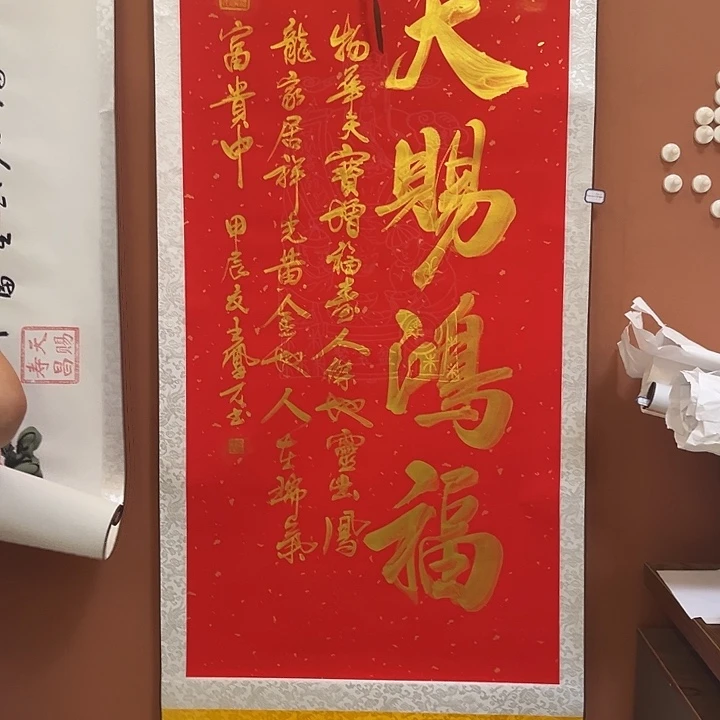 天賜鴻福
物華天寶增福壽人傑地靈出鳳
龍家居祥光黃金地人在瑞氣
富貴中
甲辰友
天賜
壽昌